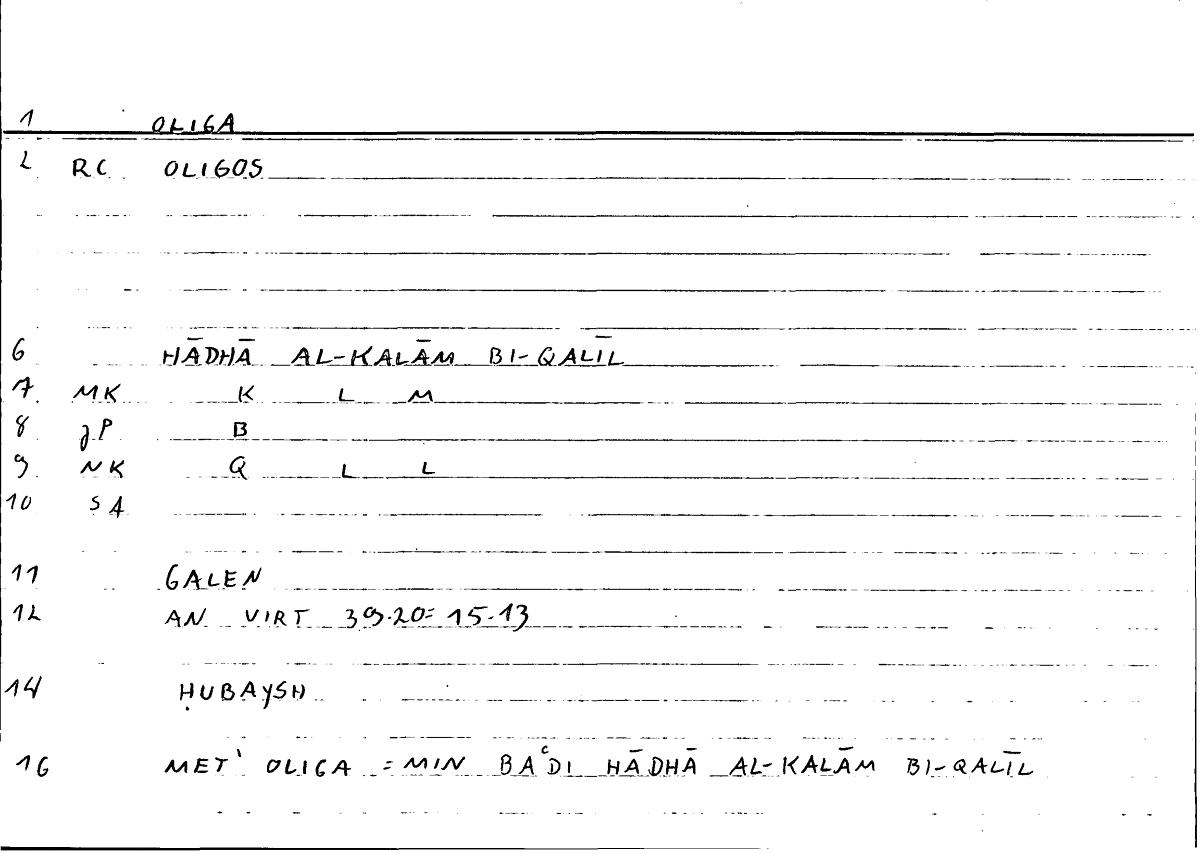 1 OLIGA
2 RC OLIGOS
6 HĀDHĀ AL-KALĀM BI-QALĪL
7 MK K L M
8 JP B
9 NK Q L L
10 SA
11 GALEN
12 AN VIRT 39.20=15.13
14 ḤUBAYSH
16 MET' OLIGA = MIN BAᶜDI HĀDHĀ AL-KALĀM BI-QALĪL